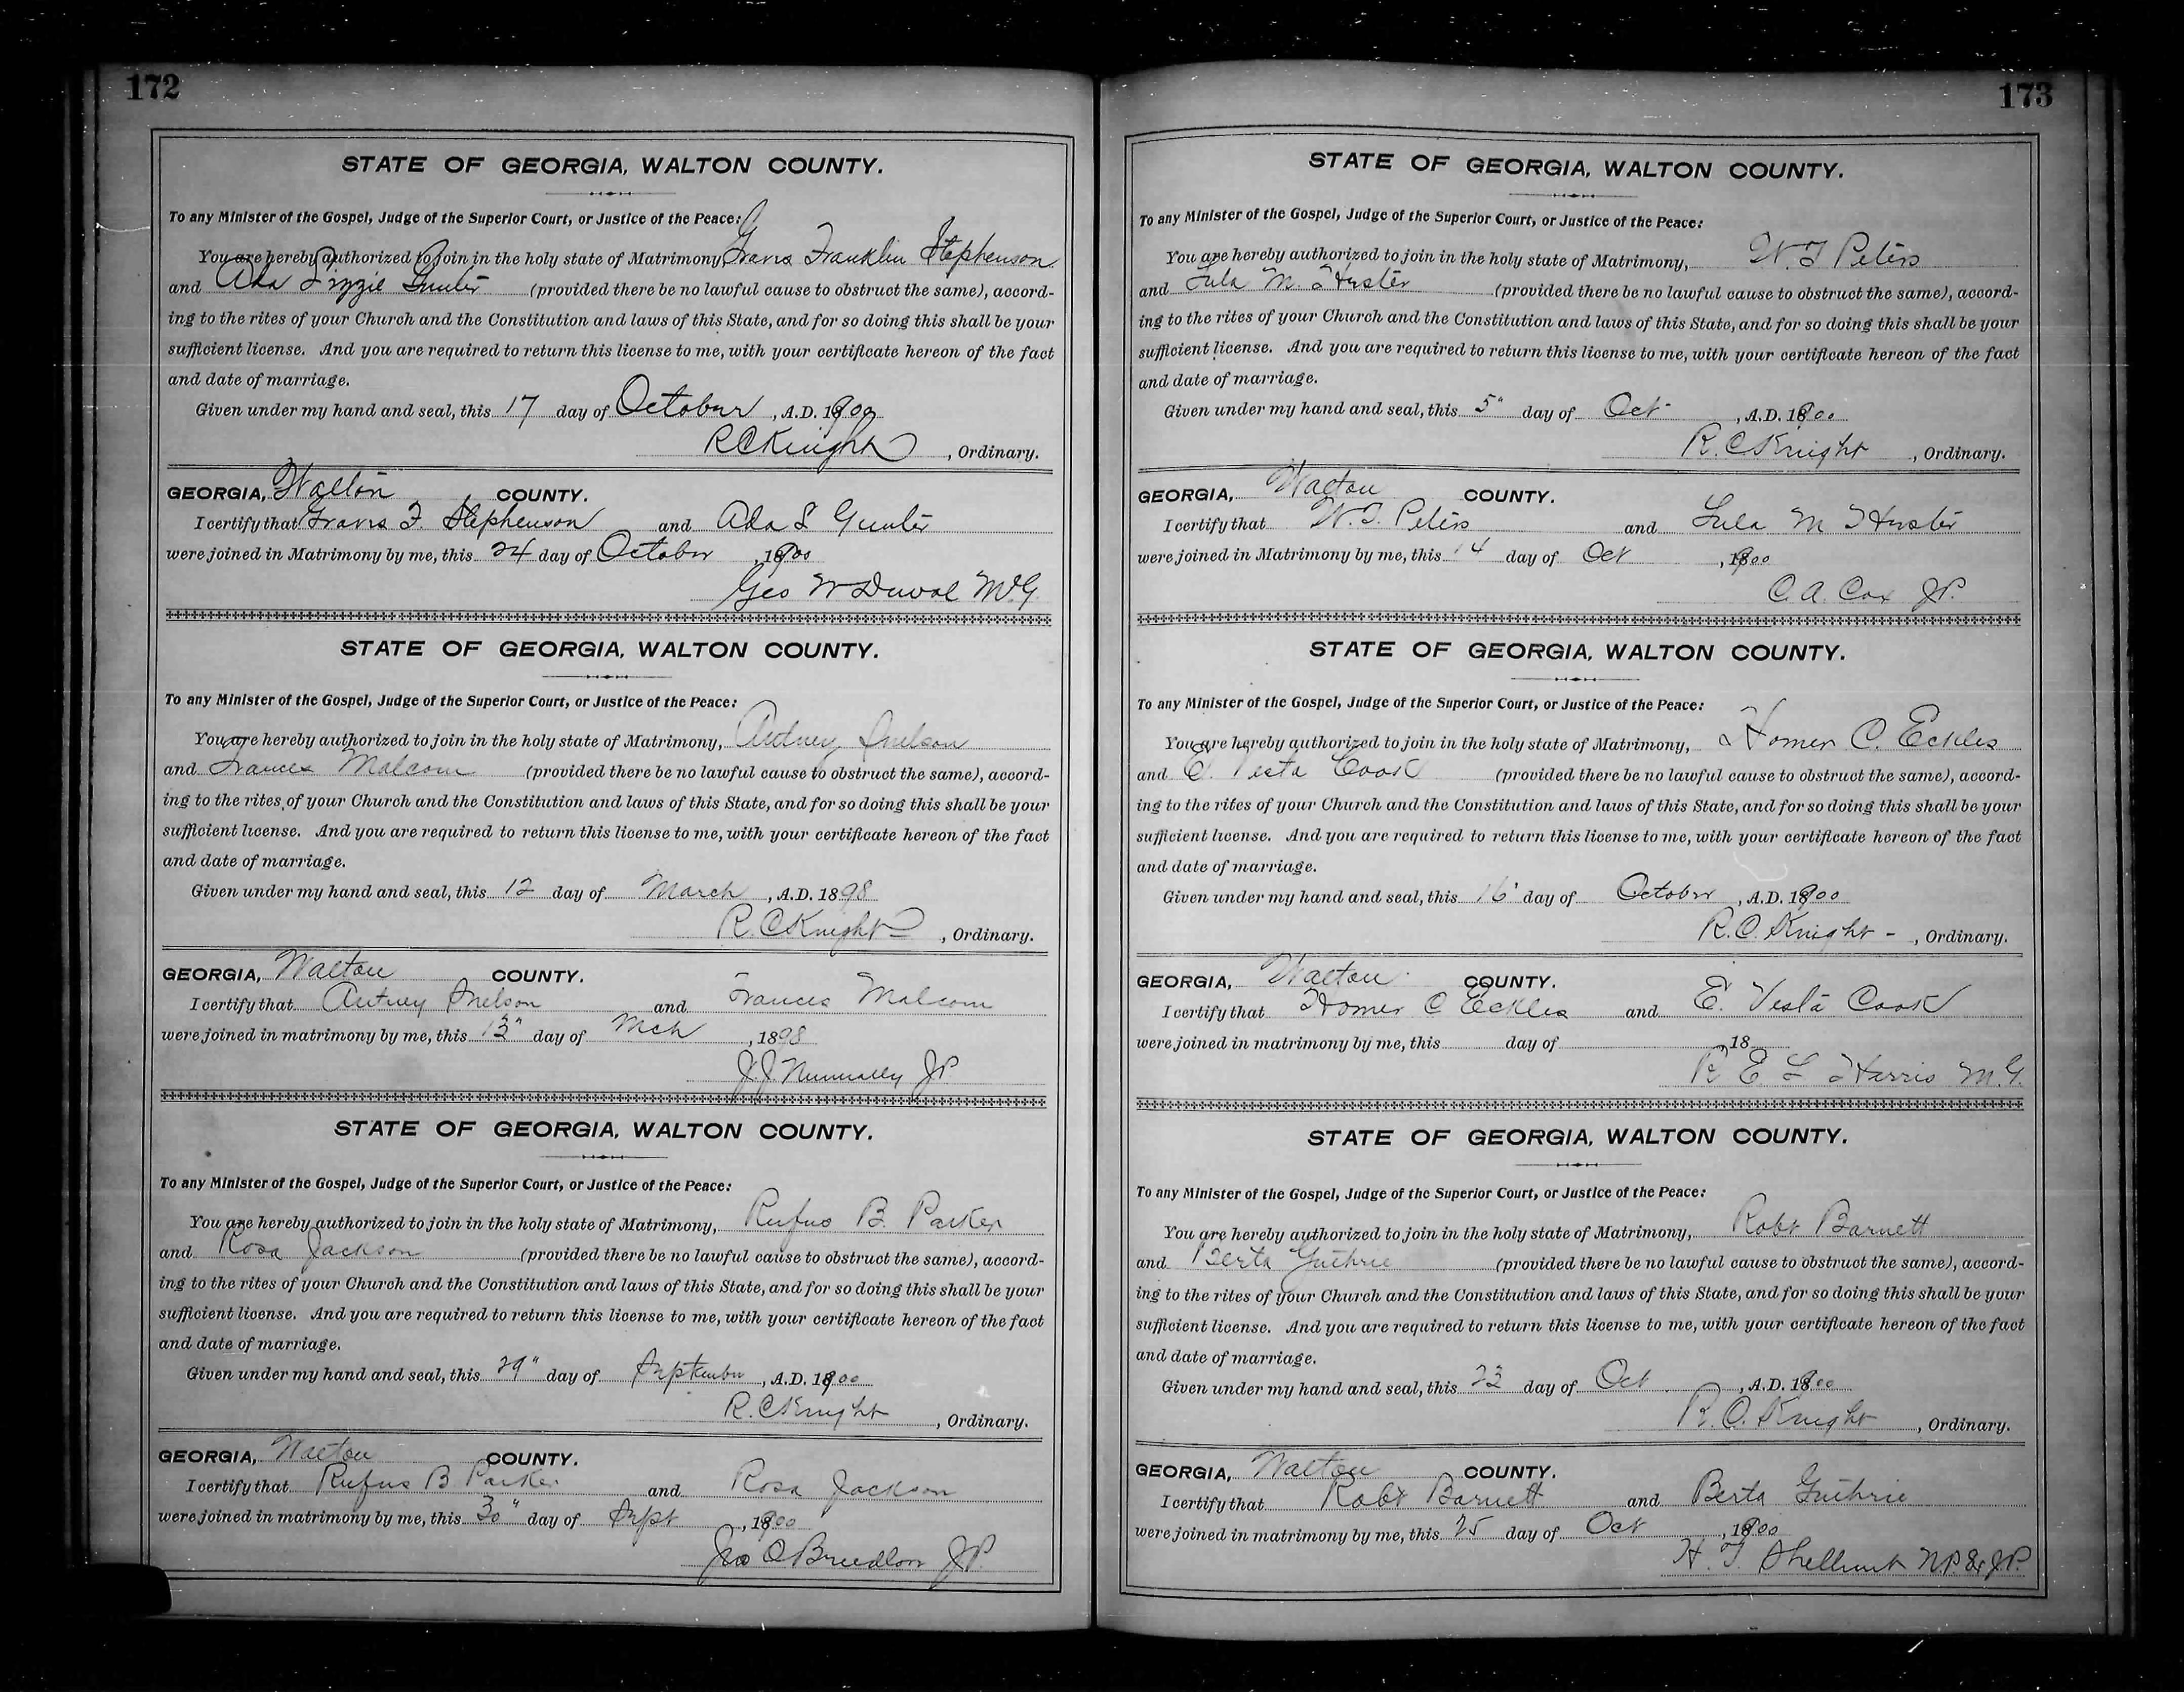 172
STATE OF GEORGIA, WALTON COUNTY.
To any Minister of the Gospel, Judge of the Superior Court, or Justice of the Peace:
You are hereby authorized to join in the holy state of Matrimony, Travis Franklin Stephenson
and Ada Lizzie Gunter (provided there be no lawful cause to obstruct the same), accord-
ing to the rites of your Church and the Constitution and laws of this State, and for so doing this shall be your
sufficient license. And you are required to return this license to me, with your certificate hereon of the fact
and date of marriage.
Given under my hand and seal, this 17 day of October, A.D. 1900
R C Knight, Ordinary.
GEORGIA, Walton COUNTY.
I certify that Travis F. Stephenson and Ada L Gunter
were joined in Matrimony by me, this 24 day of October, 1900
Geo W Duval M.G.
STATE OF GEORGIA, WALTON COUNTY.
To any Minister of the Gospel, Judge of the Superior Court, or Justice of the Peace:
You are hereby authorized to join in the holy state of Matrimony, Snelson
and Frances Malcom (provided there be no lawful cause to obstruct the same), accord-
ing to the rites of your Church and the Constitution and laws of this State, and for so doing this shall be your
sufficient license. And you are required to return this license to me, with your certificate hereon of the fact
and date of marriage.
Given under my hand and seal, this 12 day of March, A.D. 1898
R. C Knight, Ordinary.
GEORGIA, Walton COUNTY.
I certify that Snelson and Frances Malcom
were joined in matrimony by me, this 13" day of Mch, 1898
J. J. Nunnally JP
STATE OF GEORGIA, WALTON COUNTY.
To any Minister of the Gospel, Judge of the Superior Court, or Justice of the Peace:
You are hereby authorized to join in the holy state of Matrimony, Rufus B. Parker
and Rosa Jackson (provided there be no lawful cause to obstruct the same), accord-
ing to the rites of your Church and the Constitution and laws of this State, and for so doing this shall be your
sufficient license. And you are required to return this license to me, with your certificate hereon of the fact
and date of marriage.
Given under my hand and seal, this 29" day of September, A.D. 1900
R. C Knight, Ordinary.
GEORGIA, Walton COUNTY.
I certify that Rufus B Parker and Rosa Jackson
were joined in matrimony by me, this 30" day of Sept, 1900
Jno O Breedlove J.P.
173
STATE OF GEORGIA, WALTON COUNTY.
To any Minister of the Gospel, Judge of the Superior Court, or Justice of the Peace:
You are hereby authorized to join in the holy state of Matrimony, W. T Peters
and Lula M. Hester (provided there be no lawful cause to obstruct the same), accord-
ing to the rites of your Church and the Constitution and laws of this State, and for so doing this shall be your
sufficient license. And you are required to return this license to me, with your certificate hereon of the fact
and date of marriage.
Given under my hand and seal, this 5" day of Oct, A.D. 1900
R. C Knight, Ordinary.
GEORGIA, Walton COUNTY.
I certify that W. T. Peters and Lula M Hester
were joined in Matrimony by me, this 14 day of Oct, 1900
C. A. Cox J.P.
STATE OF GEORGIA, WALTON COUNTY.
To any Minister of the Gospel, Judge of the Superior Court, or Justice of the Peace:
You are hereby authorized to join in the holy state of Matrimony, Homer C. Eckles
and E. Vesta Cook (provided there be no lawful cause to obstruct the same), accord-
ing to the rites of your Church and the Constitution and laws of this State, and for so doing this shall be your
sufficient license. And you are required to return this license to me, with your certificate hereon of the fact
and date of marriage.
Given under my hand and seal, this 16" day of October, A.D. 1900
R. C. Knight -, Ordinary.
GEORGIA, Walton COUNTY.
I certify that Homer C Eckles and E. Vesta Cook
were joined in matrimony by me, this day of , 18
R E L Harris M.G.
STATE OF GEORGIA, WALTON COUNTY.
To any Minister of the Gospel, Judge of the Superior Court, or Justice of the Peace:
You are hereby authorized to join in the holy state of Matrimony, Robt Barnett
and Berta Guthrie (provided there be no lawful cause to obstruct the same), accord-
ing to the rites of your Church and the Constitution and laws of this State, and for so doing this shall be your
sufficient license. And you are required to return this license to me, with your certificate hereon of the fact
and date of marriage.
Given under my hand and seal, this 23 day of Oct, A.D. 1900
R. C. Knight, Ordinary.
GEORGIA, Walton COUNTY.
I certify that Robt Barnett and Berta Guthrie
were joined in matrimony by me, this 25 day of Oct, 1900
H. T. Shellnut N.P. & J.P.